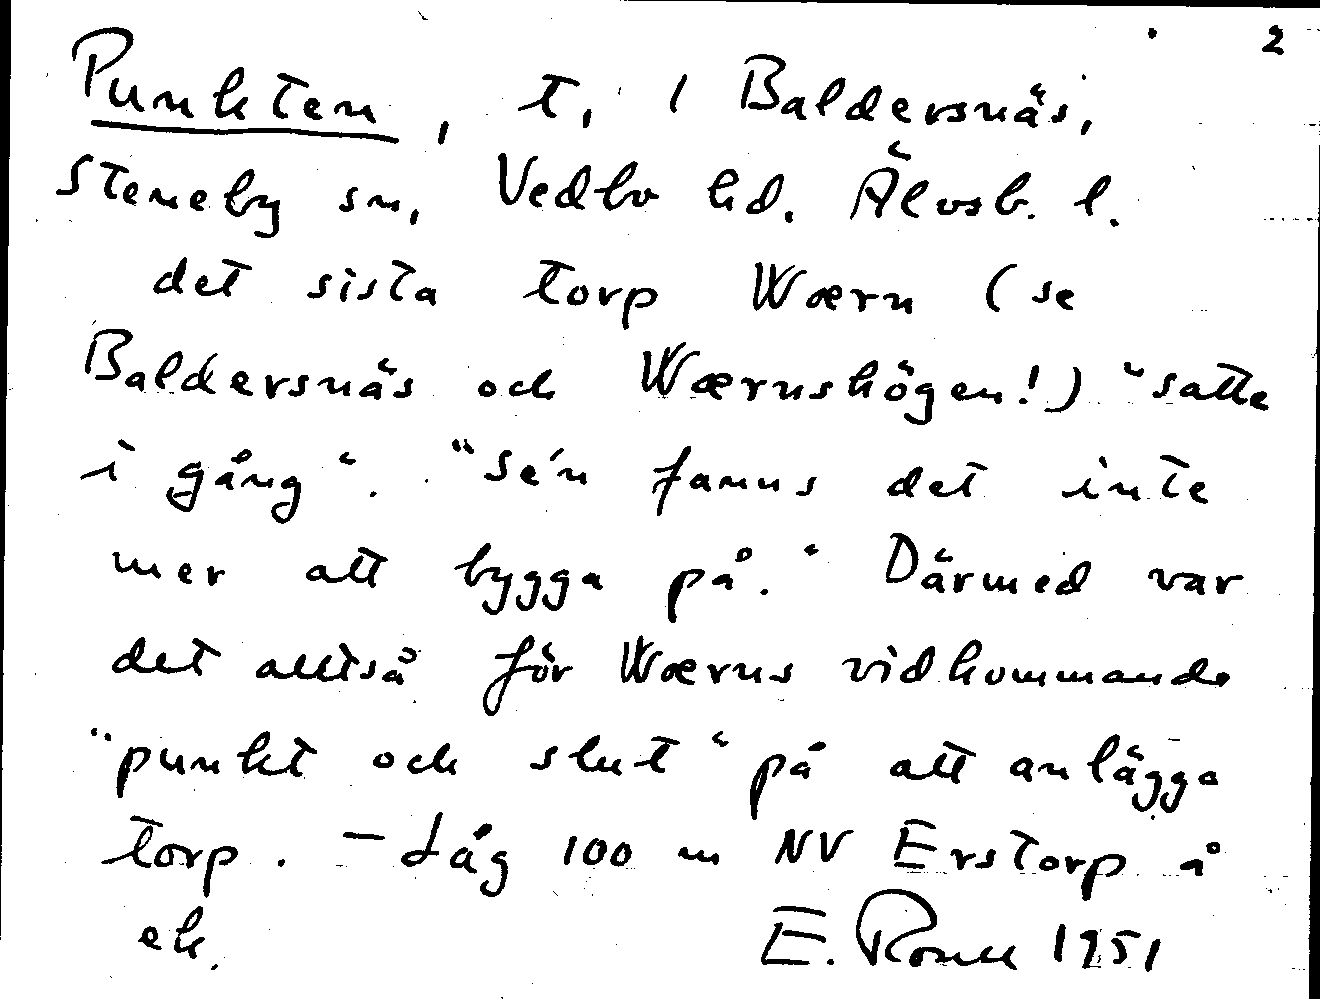 2
Punkten, t, 1 Baldersnäs,
Steneby sn, Vedbo hd. Älvsb. l.
det sista torp Wærn (se
Baldersnäs och Wærnshögen!) "satte
i gång". "Se'n fanns det inte
mer att bygga på." Därmed var
det alltså för Wærns vidkommande
"punkt och slut" på att anlägga
torp. - Låg 100 m NV Erstorp å
ek. E. 1951